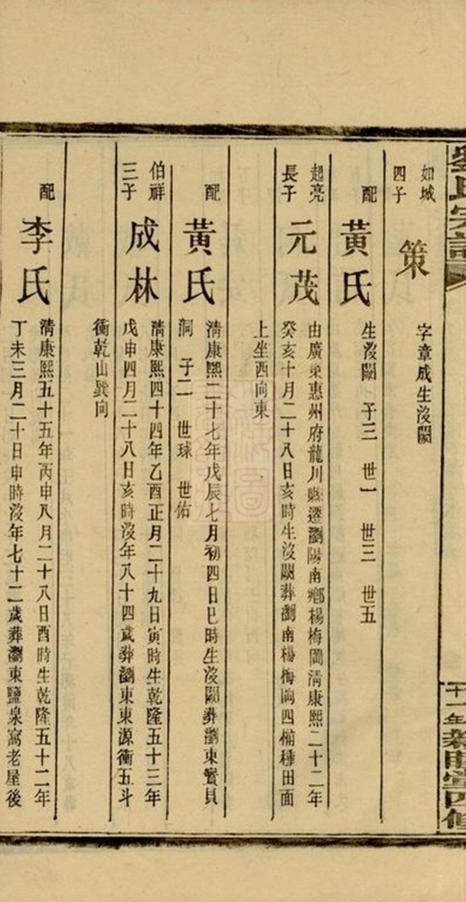 劉氏宗譜
十一年 四修
如城
四子
策
字章成生沒闕
配
黃氏
生沒闕 子三 世一 世三 世五
起亮
長子
元茂
由廣東惠州府龍川縣遷瀏陽南鄉楊梅岡清康熙二十二年
癸亥十月二十八日亥時生沒闕葬瀏南楊梅岡四桶種田面
上坐西向東
配
黃氏
清康熙二十七年戊辰七月初四日巳時生沒闕葬瀏東寶貝
洞 子二 世球 世佑
伯祥
三子
成林
清康熙四十四年乙酉正月二十九日寅時生乾隆五十三年
戊申四月二十八日亥時沒年八十四歲葬瀏東東源衝五斗
衝乾山巽向
配
李氏
清康熙五十五年丙申八月二十八日酉時生乾隆五十二年
丁未三月二十日申時沒年七十二歲葬瀏東鹽泉窩老屋後